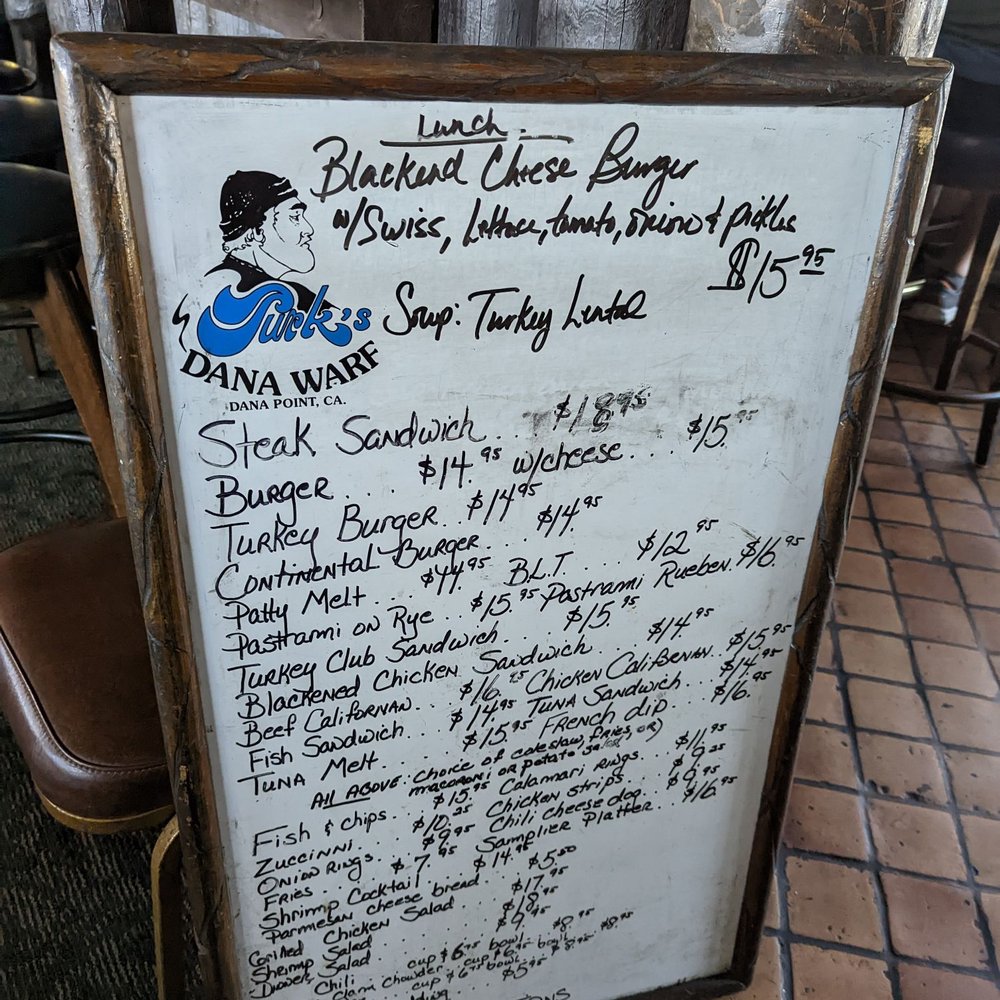 Lunch
Blackend Cheese Burger
w/Swiss, Lettuce, tomato, onion & pickles
$15.95
Turk's
DANA WARF
DANA POINT, CA.
Soup: Turkey Lental
Steak Sandwich... $18.95
Burger.... $14.95 w/cheese.... $15.95
Turkey Burger.. $14.95
Continental Burger... $14.95
Patty Melt... $14.95 B.L.T..... $12.95
Pastrami on Rye.. $15.95 Pastrami Rueben. $16.95
Turkey Club Sandwich.... $15.95
Blackened Chicken Sandwich... $14.95
Beef Californan... $16.95 Chicken Califernan.. $15.95
Fish Sandwich... $14.95 Tuna Sandwich... $14.95
Tuna Melt.... $15.95 French dip... $16.95
All Above: choice of coleslaw, fries, or)
macaroni or potato salad
Fish & chips... $15.95 Calamari Rings... $11.95
Zuccinni.... $10.25 Chicken strips... $9.25
Onion Rings.. $9.95 Chili cheese dog... $9.95
Fries.... $7.95 Samplier Platter.. $16.95
Shrimp Cocktail.... $14.95
Parmesan cheese bread... $5.50
Grilled Chicken Salad.... $17.95
Shrimp Salad...... $18.95
Dinner Salad..... $9.95
Chili.... cup $6.95 bowl.. $8.95
Clam Chowder.. cup $6.95 bowl.. $8.95
cup $6.95 bowl.. $8.95
$5.95